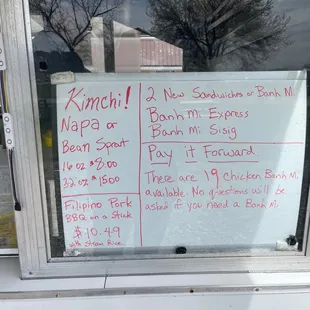 Kimchi!
Napa or
Bean Sprout
16 oz $8.00
32 oz $15.00
Filipino Pork
BBQ on a Stick
$10.49
with Steam Rice
2 New Sandwiches or Banh Mi
Banh Mi Express
Banh Mi Sisig
Pay it Forward
There are 19 Chicken Banh Mi
available. No questions will be
asked if you need a Banh Mi.